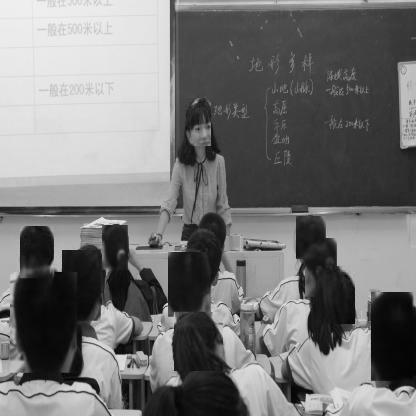 一般在500米以上
一般在500米以上
一般在200米以下
地形多样
地形类型
山地(山脉)
高原
平原
盆地
丘陵
海拔高度
一般在500米以上
一般在200米以下